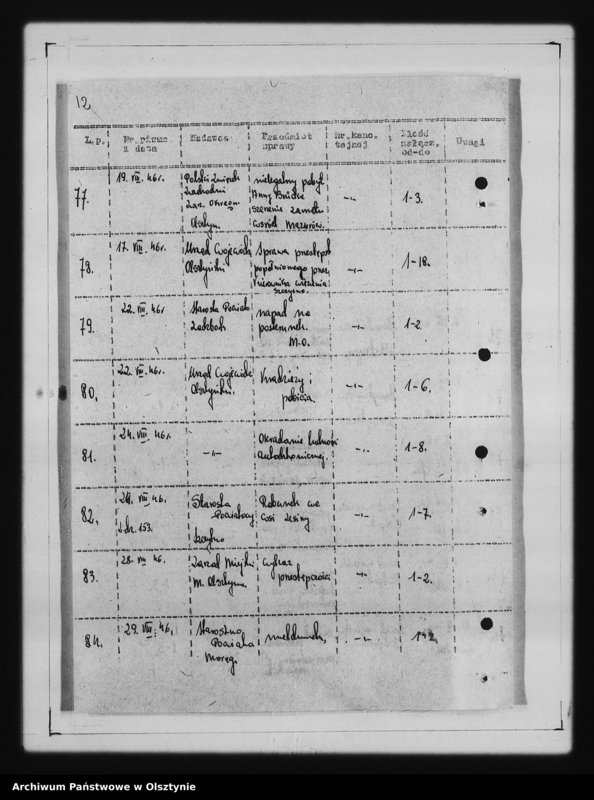 12
L.p. Nr. pisma i data Nadawca Przedmiot sprawy Nr. kanc. tajnej Ilość załącz. od-do Uwagi
77. 19. VIII. 46r. Polski Związek Zachodni Olsztyn. nielegalny pobyt Anny wśród Mazurów. -"- 1-3.
78. 17. VIII. 46r. Urząd Wojewódzki Olsztyński Sprawa przestępst popełnionego przez więzienia Szczytno. -"- 1-18.
79. 22. VIII. 46r Starosta Powiato napad na posterunek M.O. -"- 1-2
80. 22. VIII. 46r. Urząd Wojewódzki Olsztyński. Kradzieży i pobicia. -"- 1-6.
81. 24. VIII. 46r. -"- Okradanie ludności autochtonicznej. -"- 1-8.
82. 24. VIII. 46r. L.dz. 153. Starosta Powiatowy Szczytno Rabunek we wsi -"- 1-7.
83. 28. VIII. 46. Zarząd Miejski m. Olsztyna wykaz przestępczości -"- 1-2.
84. 29. VIII. 46. Starostwo Powiato Morąg. meldunek, -"- 1-2.
Archiwum Państwowe w Olsztynie